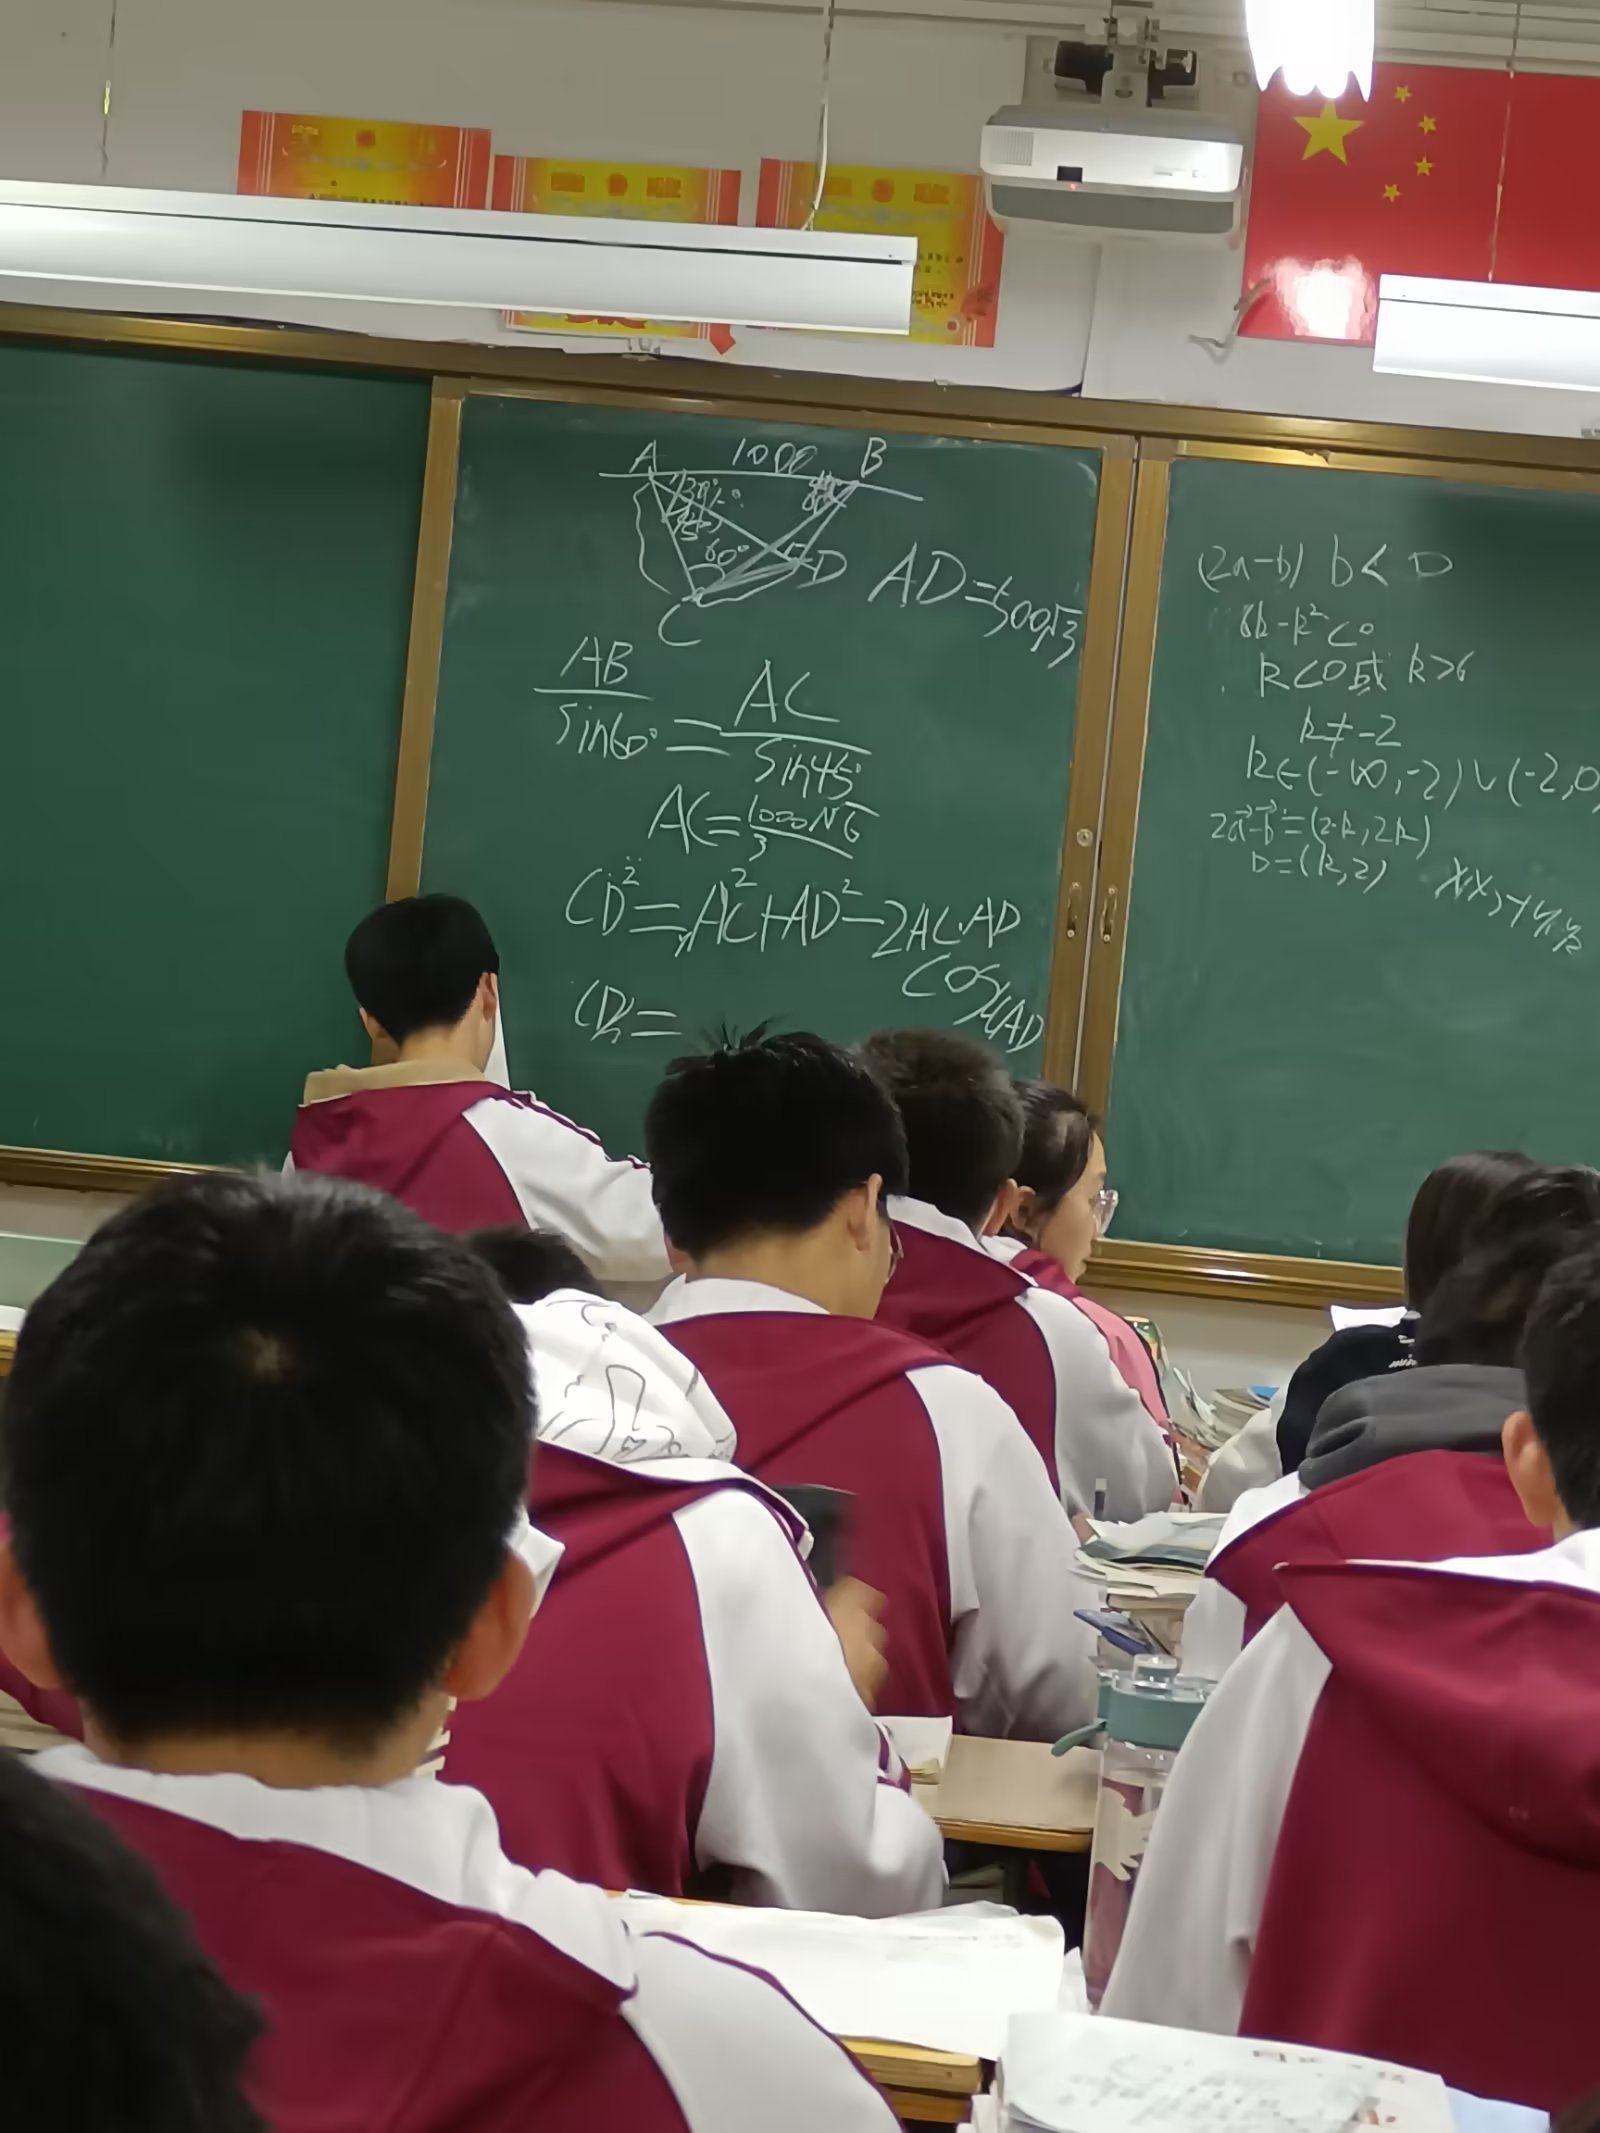 A 1000 B
60°
D
AD=500√3
C
AB/sin60° = AC/sin45°
AC=1000√6/3
CD²=AC²+AD²-2AC·AD
cos∠CAD
CD=
(2a-b) b<0
6k-k²<0
k<0或 k>6
k≠-2
k∈(-∞,-2)∪(-2,0
2a-b=(2-k,2k)
b=(k,2)